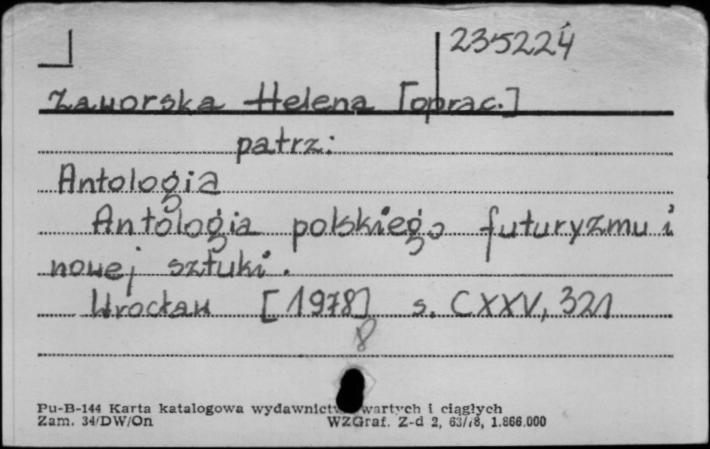 235224
Zaworska Helena [oprac.]
patrz:
Antologia
Antologia polskiego futuryzmu i
nowej sztuki.
Wrocław [1978] s. CXXV, 321
8
Pu-B-144 Karta katalogowa wydawnictw zwartych i ciągłych
Zam. 34/DW/On WZGraf. Z-d 2, 63/78, 1.866.000